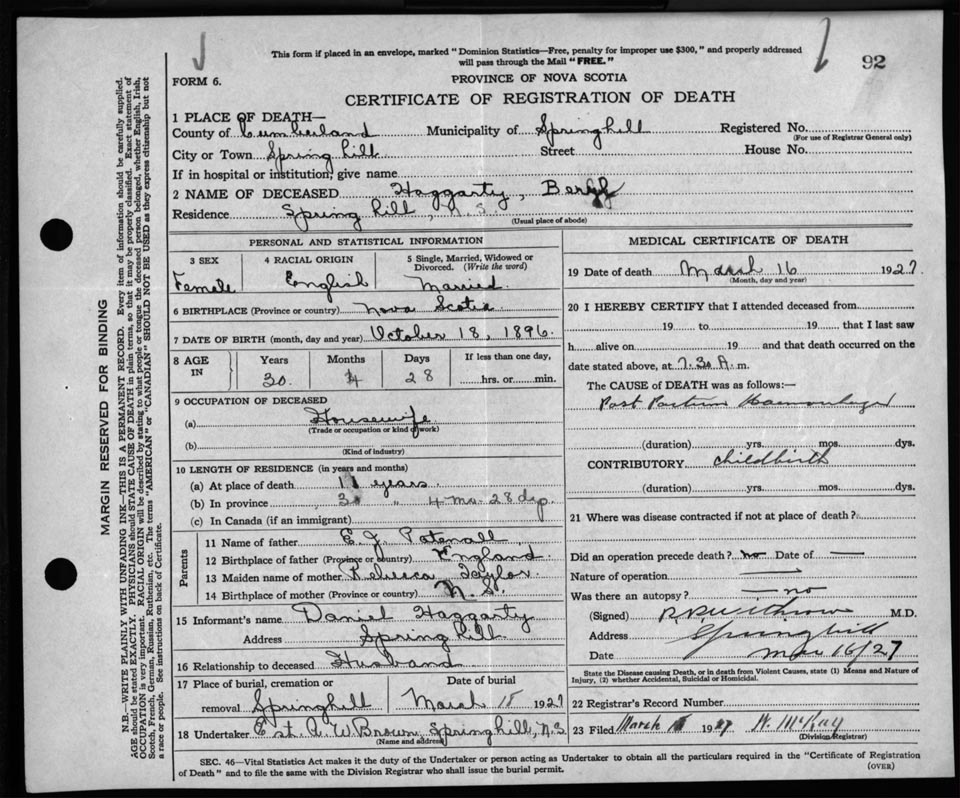 This form if placed in an envelope, marked "Dominion Statistics—Free, penalty for improper use $300," and properly addressed
will pass through the Mail "FREE."
92
FORM 6.
PROVINCE OF NOVA SCOTIA
CERTIFICATE OF REGISTRATION OF DEATH
1 PLACE OF DEATH—
County of Cumberland Municipality of Springhill Registered No.
(For use of Registrar General only)
City or Town Spring hill Street House No.
If in hospital or institution, give name
2 NAME OF DECEASED Haggarty,
Residence Spring hill, N.S.
(Usual place of abode)
PERSONAL AND STATISTICAL INFORMATION
3 SEX 4 RACIAL ORIGIN 5 Single, Married, Widowed or
Divorced. (Write the word)
Female English Married
6 BIRTHPLACE (Province or country) Nova Scotia
7 DATE OF BIRTH (month, day and year) October 18, 1896.
8 AGE IN Years Months Days If less than one day,
30. 4 28 hrs. or min.
9 OCCUPATION OF DECEASED
(a) Housewife
(Trade or occupation or kind of work)
(b)
(Kind of industry)
10 LENGTH OF RESIDENCE (in years and months)
(a) At place of death years
(b) In province 30 " 4 mo. 28 dys
(c) In Canada (if an immigrant)
Parents
11 Name of father E. J. Patenall
12 Birthplace of father (Province or country) England.
13 Maiden name of mother Rebecca Taylor.
14 Birthplace of mother (Province or country) N.S.
15 Informant's name Daniel Haggarty
Address Spring hill
16 Relationship to deceased Husband
17 Place of burial, cremation or Date of burial
removal Springhill March 18 1927
18 Undertaker Est. A. W Brown, Springhill, N.S.
(Name and address)
MEDICAL CERTIFICATE OF DEATH
19 Date of death March 16 1927.
(Month, day and year)
20 I HEREBY CERTIFY that I attended deceased from
19 to 19 that I last saw
h alive on 19 and that death occurred on the
date stated above, at 7.30 A. m.
The CAUSE of DEATH was as follows:—
Post Partum Haemorhage
(duration) yrs. mos. dys.
CONTRIBUTORY Childbirth
(duration) yrs. mos. dys.
21 Where was disease contracted if not at place of death?
Did an operation precede death? no Date of —
Nature of operation —
Was there an autopsy? — no
(Signed) M.D.
Address Springhill
Date Mar 16/27
State the Disease causing Death, or in death from Violent Causes, state (1) Means and Nature of
Injury, (2) whether Accidental, Suicidal or Homicidal.
22 Registrar's Record Number
23 Filed March 1927 W. McKay
(Division Registrar)
SEC. 46—Vital Statistics Act makes it the duty of the Undertaker or person acting as Undertaker to obtain all the particulars required in the "Certificate of Registration
of Death" and to file the same with the Division Registrar who shall issue the burial permit.
(OVER)
MARGIN RESERVED FOR BINDING
N.B.—WRITE PLAINLY WITH UNFADING INK—THIS IS A PERMANENT RECORD. Every item of information should be carefully supplied.
AGE should be stated EXACTLY. PHYSICIANS should STATE CAUSE OF DEATH in plain terms, so that it may be properly classified. Exact statement of
OCCUPATION is very important. RACIAL ORIGIN will be described by stating to what people or tongue the deceased person belonged, whether English, Irish,
Scotch, French, German, Russian, Ruthenian, etc. The terms "AMERICAN" or "CANADIAN" SHOULD NOT BE USED as they express citizenship but not
a race or people. See instructions on back of Certificate.